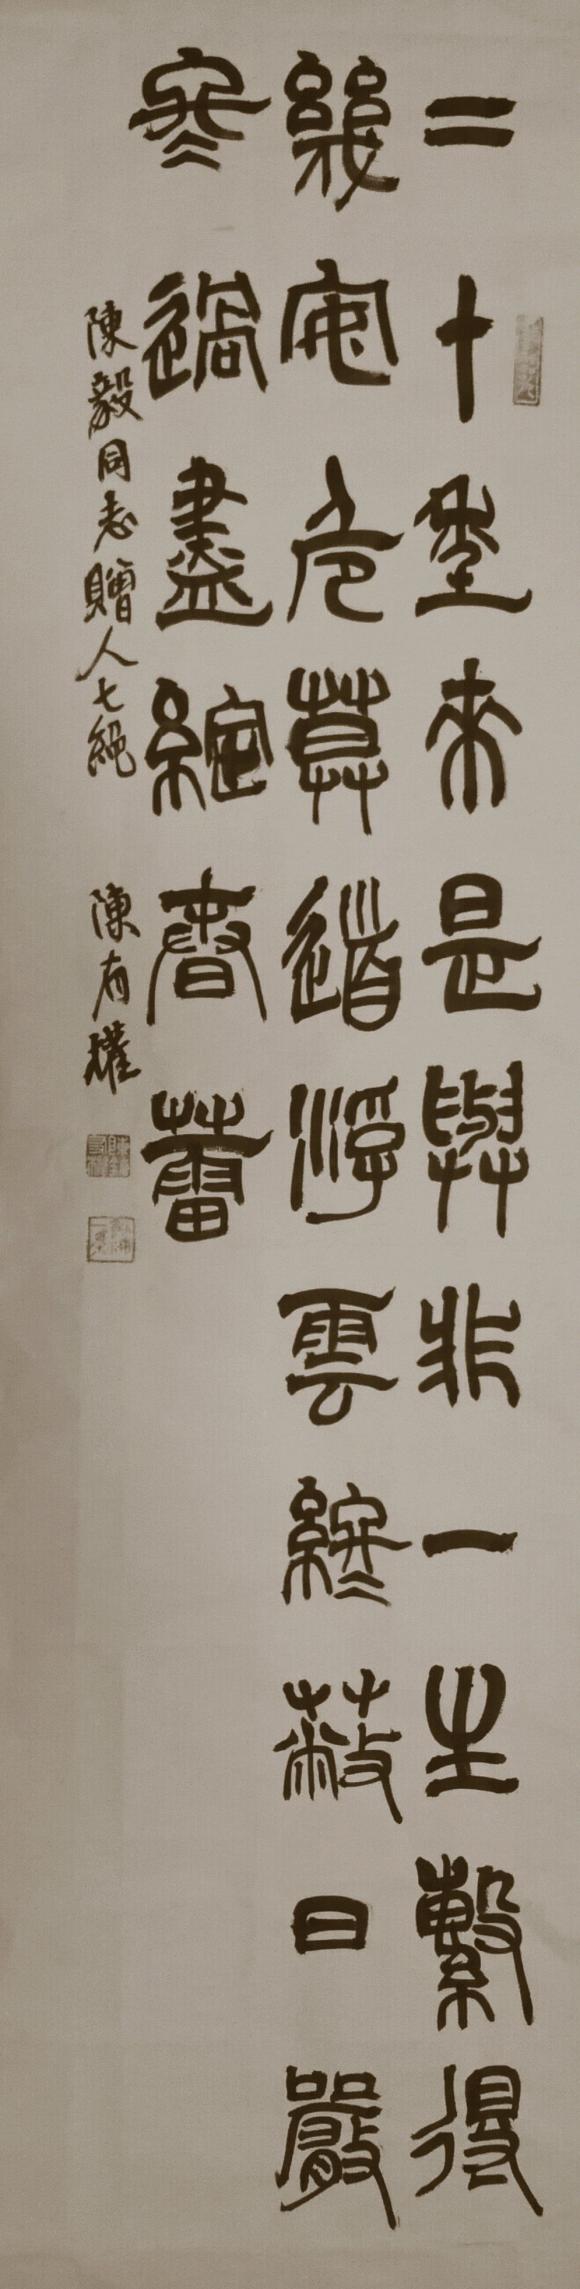 二十年來是與非一生繫得
幾安危莫道浮雲終蔽日嚴
冬過盡綻春蕾
陳毅同志贈人七絕
陳有權